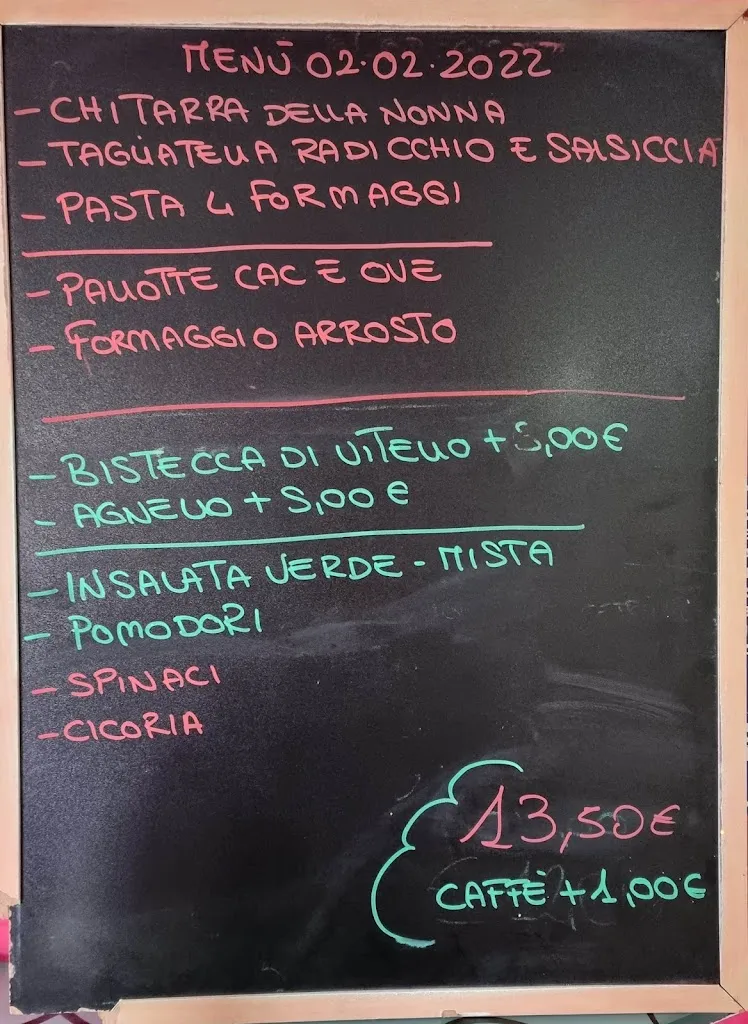 MENÙ 02.02.2022
- CHITARRA DELLA NONNA
- TAGLIATELLA RADICCHIO E SALSICCIA
- PASTA 4 FORMAGGI
- PALLOTTE CAC E OVE
- FORMAGGIO ARROSTO
- BISTECCA DI VITELLO + 5,00€
- AGNELLO + 5,00 €
- INSALATA VERDE - MISTA
- POMODORI
- SPINACI
- CICORIA
13,50€
CAFFÈ +1,00€